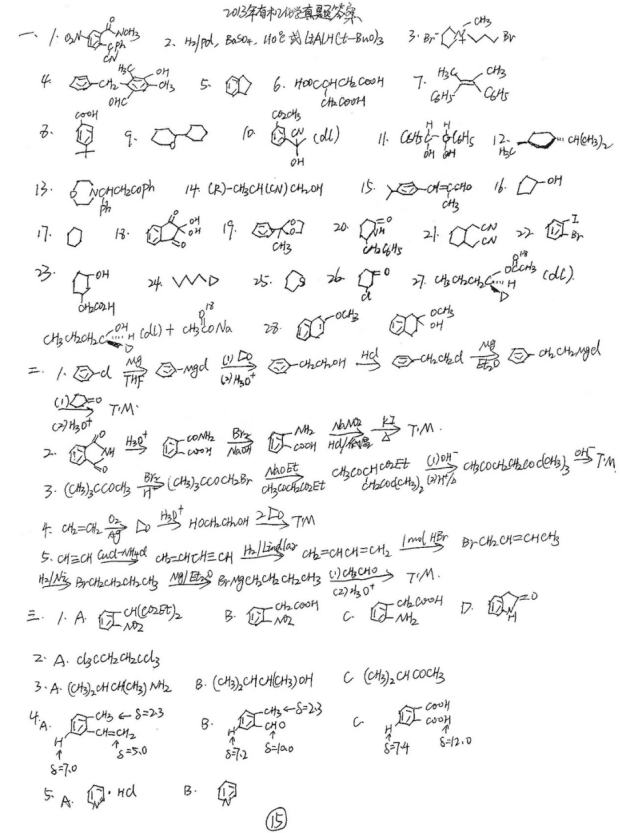 2013年有机化学真题答案
一、1. O₂N NCH₃ O CPh CN 2. H₂/Pd, BaSO₄, 110℃ 或 LiAlH(t-BuO)₃ 3. Br⁻ N⁺ CH₃ Br
4. CH₂ H₃C OH CH₃ OHC 5. 6. HOOCCHCH₂COOH CH₂COOH 7. H₃C CH₃ C₆H₅ C₆H₅
8. COOH 9. O 10. CO₂CH₃ CN OH (dl) 11. C₆H₅C C₆H₅ H H OH OH 12. H₃C CH(CH₃)₂
13. O NCHCH₂COPh Ph 14. (R)-CH₃CH(CN)CH₂OH 15. CH=CCHO CH₃ 16. OH
17. 18. O OH OH O 19. C O O CH₃ 20. N O CH₂C₆H₅ 21. CN CN 22. I Br
23. OH CH₂CO₂H 24. D 25. S 26. O Cl 27. CH₃CH₂CH₂C O¹⁸ OCCH₃ H D (dl).
CH₃CH₂CH₂C OH H D (dl) + CH₃CONa O¹⁸ 28. OCH₃ OCH₃ OH
二、1. Cl Mg THF MgCl (1) O (2) H₃O⁺ CH₂CH₂OH HCl CH₂CH₂Cl Mg Et₂O CH₂CH₂MgCl
(1) O (2) H₃O⁺ T.M.
2. O NH O H₃O⁺ CONH₂ COOH Br₂ NaOH NH₂ COOH NaNO₂ HCl/低温 KI Δ T.M.
3. (CH₃)₃CCOCH₃ Br₂ H⁺ (CH₃)₃CCOCH₂Br NaOEt CH₃COCH₂CO₂Et CH₃COCHCO₂Et CH₂COC(CH₃)₃ (1) OH⁻ (2) H⁺/Δ CH₃COCH₂CH₂COC(CH₃)₃ OH⁻ T.M
4. CH₂=CH₂ O₂ Ag O H₃O⁺ HOCH₂CH₂OH 2 O T.M
5. CH≡CH CuCl-NH₄Cl CH₂=CHC≡CH H₂/Lindlar CH₂=CHCH=CH₂ 1mol HBr BrCH₂CH=CHCH₃
H₂/Ni BrCH₂CH₂CH₂CH₃ Mg/Et₂O BrMgCH₂CH₂CH₂CH₃ (1) CH₃CHO (2) H₃O⁺ T.M.
三、1. A. CH(CO₂Et)₂ NO₂ B. CH₂COOH NO₂ C. CH₂COOH NH₂ D. N H =O
2. A. Cl₃CCH₂CH₂CCl₃
3. A. (CH₃)₂CHCH(CH₃)NH₂ B. (CH₃)₂CHCH(CH₃)OH C (CH₃)₂CHCOCH₃
4. A. CH₃ ← δ=2.3 CH=CH₂ H δ=5.0 δ=7.0 B. CH₃ ← δ=2.3 CHO H δ=7.2 δ=10.0 C. COOH COOH H δ=7.4 δ=12.0
5. A. N · HCl B. N
15